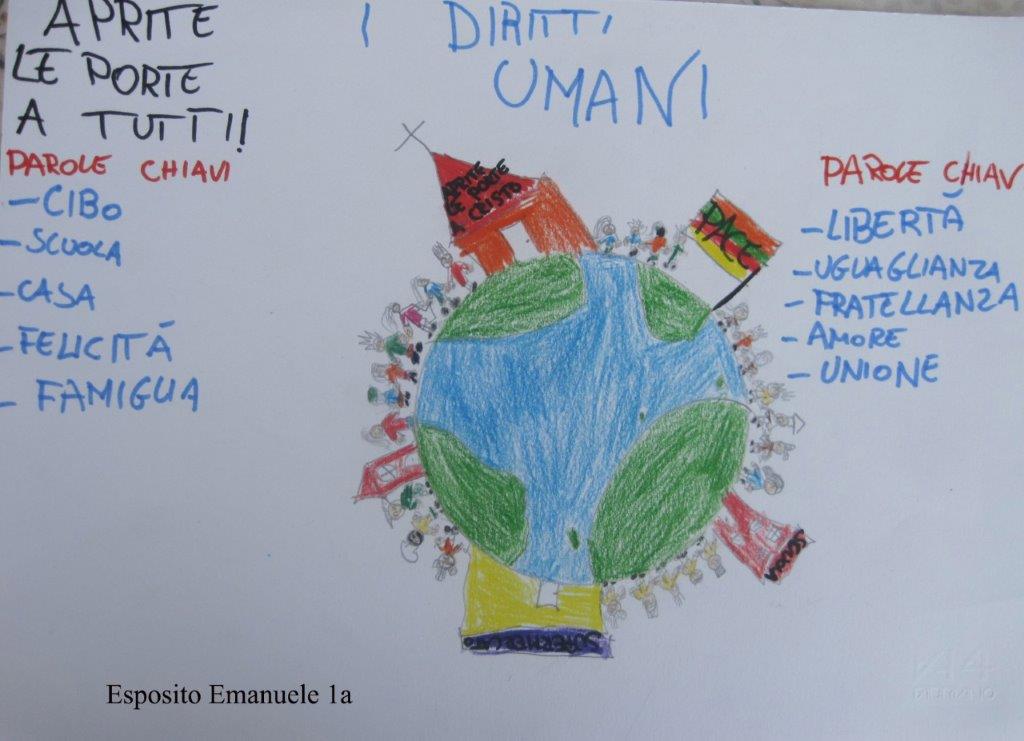 APRITE
LE PORTE
A TUTTI!
I DIRITTI
UMANI
PAROLE CHIAVI
-CIBO
-SCUOLA
-CASA
-FELICITÀ
- FAMIGLIA
APRITE
LE PORTE
A CRISTO
PACE
PAROLE CHIAV
-LIBERTÀ
-UGUAGLIANZA
-FRATELLANZA
-AMORE
-UNIONE
SCUOLA
SUPERMERCATO
Esposito Emanuele 1a